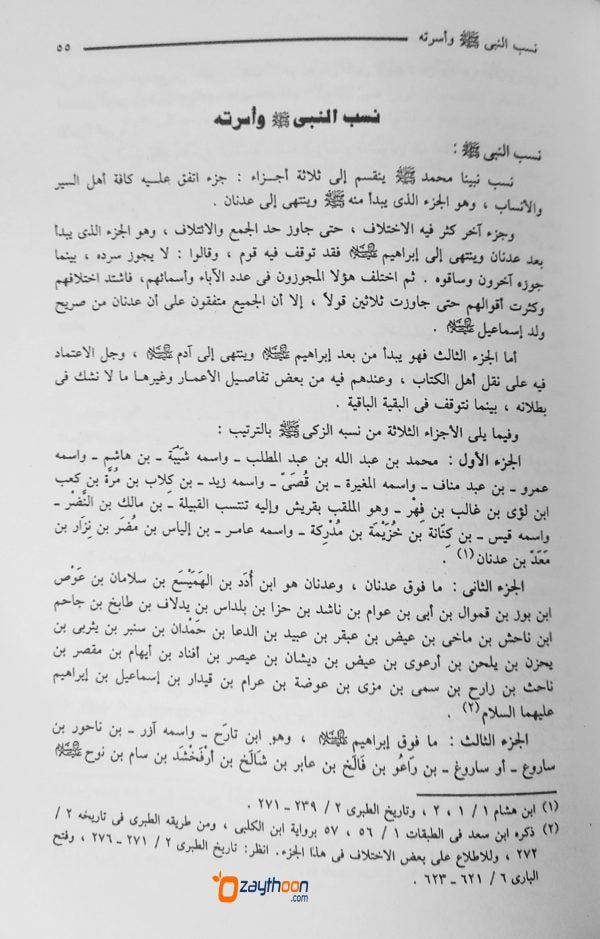 نسب النبى ﷺ وأسرته ٥٥
نسب النبى ﷺ وأسرته
نسب النبى ﷺ :
نسب نبينا محمد ﷺ ينقسم إلى ثلاثة أجزاء : جزء اتفق عليه كافة أهل السير
والأنساب ، وهو الجزء الذى يبدأ منه ﷺ وينتهى إلى عدنان .
وجزء آخر كثر فيه الاختلاف ، حتى جاوز حد الجمع والائتلاف ، وهو الجزء الذى يبدأ
بعد عدنان وينتهى إلى إبراهيم عليه السلام فقد توقف فيه قوم ، وقالوا : لا يجوز سرده ، بينما
جوزه آخرون وساقوه . ثم اختلف هؤلا المجوزون فى عدد الآباء وأسمائهم، فاشتد اختلافهم
وكثرت أقوالهم حتى جاوزت ثلاثين قولاً ، إلا أن الجميع متفقون على أن عدنان من صريح
ولد إسماعيل عليه السلام .
أما الجزء الثالث فهو يبدأ من بعد إبراهيم عليه السلام وينتهى إلى آدم عليه السلام ، وجل الاعتماد
فيه على نقل أهل الكتاب ، وعندهم فيه من بعض تفاصيل الأعمار وغيرها ما لا نشك فى
بطلانه ، بينما نتوقف فى البقية الباقية .
وفيما يلى الأجزاء الثلاثة من نسبه الزكى ﷺ بالترتيب :
الجزء الأول : محمد بن عبد الله بن عبد المطلب ــ واسمه شَيْبَة ــ بن هاشم ــ واسمه
عمرو ــ بن عبد مناف ــ واسمه المغيرة ــ بن قُصَىّ ــ واسمه زيد ــ بن كِلاب بن مُرَّة بن كعب
ابن لؤى بن غالب بن فِهْر ــ وهو الملقب بقريش وإليه تنتسب القبيلة ــ بن مالك بن النَّضْر ــ
واسمه قيس ــ بن كِنَانة بن خُزَيْمَة بن مُدْرِكة ــ واسمه عامر ــ بن إلياس بن مُضَر بن نِزَار بن
مَعَدّ بن عدنان (١) .
الجزء الثانى : ما فوق عدنان ، وعدنان هو ابن أُدَد بن الهَمَيْسَع بن سلامان بن عَوْص
ابن بوز بن قموال بن أبى بن عوام بن ناشد بن حزا بن بلداس بن يدلاف بن طابخ بن جاحم
ابن ناحش بن ماخى بن عيض بن عبقر بن عبيد بن الدعا بن حَمْدَان بن سنبر بن يثربى بن
يحزن بن يلحن بن أرعوى بن عيض بن ديشان بن عيصر بن أفناد بن أيهام بن مقصر بن
ناحث بن زارح بن سمى بن مزى بن عوضة بن عرام بن قيدار بن إسماعيل بن إبراهيم
عليهما السلام (٢) .
الجزء الثالث : ما فوق إبراهيم عليه السلام ، وهو ابن تارَح ــ واسمه آزر ــ بن ناحور بن
ساروع ــ أو ساروغ ــ بن رَاعُو بن فَالَخ بن عابر بن شَالَخ بن أرْفَخْشَد بن سام بن نوح عليه السلام
(١) ابن هشام ١ / ١ ، ٢ ، وتاريخ الطبرى ٢ / ٢٣٩ ــ ٢٧١ .
(٢) ذكره ابن سعد فى الطبقات ١ / ٥٦ ، ٥٧ برواية ابن الكلبى ، ومن طريقه الطبرى فى تاريخه ٢ /
٢٧٢ ، وللاطلاع على بعض الاختلاف فى هذا الجزء. انظر: تاريخ الطبرى ٢ / ٢٧١ ــ ٢٧٦ ، وفتح
البارى ٦ / ٦٢١ ــ ٦٢٣ .
Ozaythoon
.com